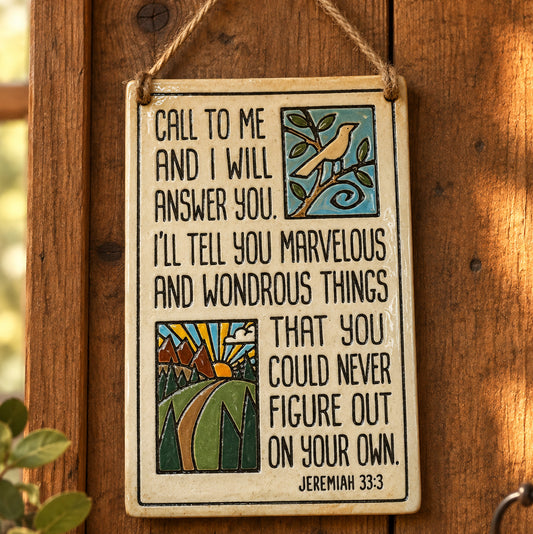 CALL TO ME
AND I WILL
ANSWER YOU.
I'LL TELL YOU MARVELOUS
AND WONDROUS THINGS
THAT YOU
COULD NEVER
FIGURE OUT
ON YOUR OWN.
JEREMIAH 33:3